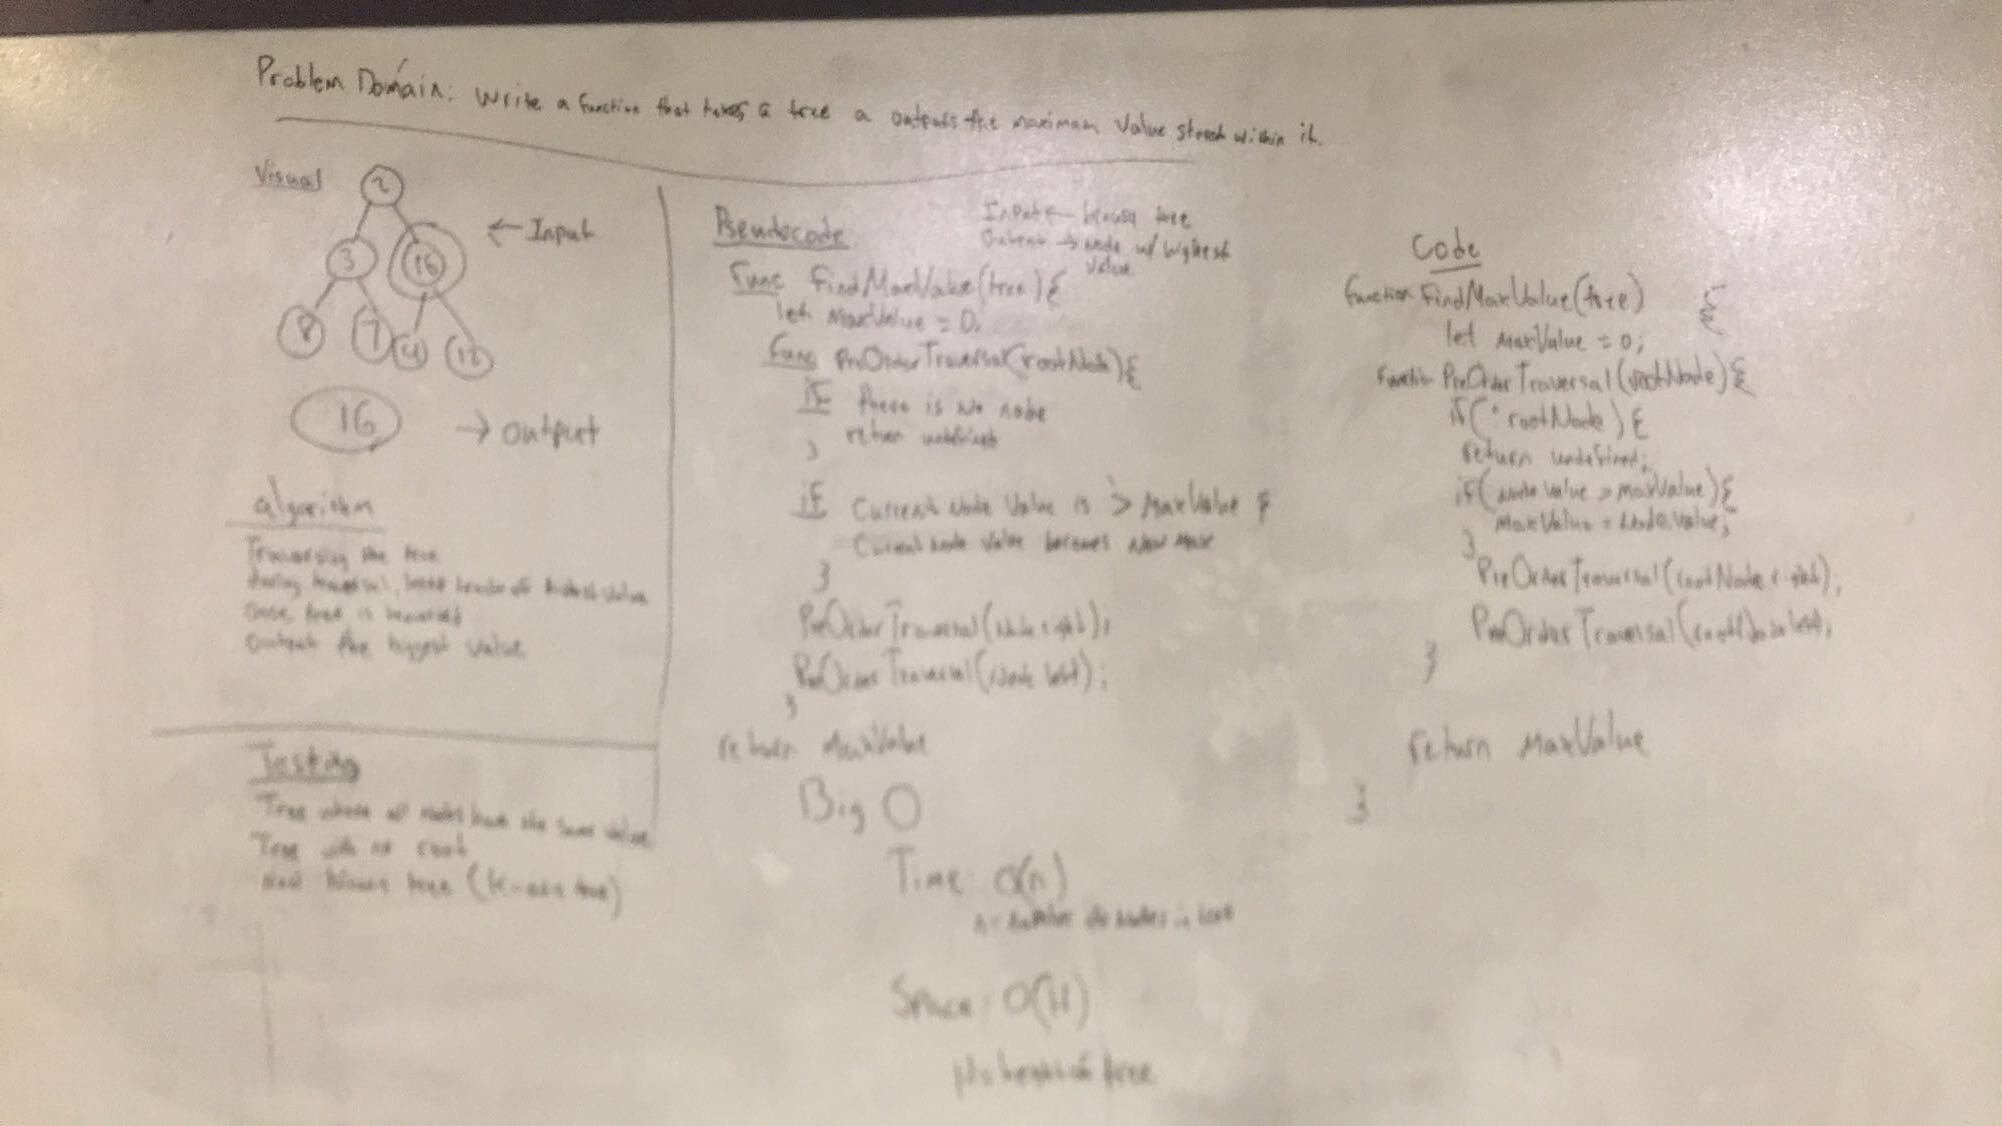 Problem Domain: Write a function that takes a tree a outputs the maximum value stored within it.
Visual
2
← Input
3
16
8
7
4
12
16
→ output
algorithm
Traversing the tree
during traversal, keep track of highest value
once tree is traversed
output the biggest value
Testing
Tree whose all nodes have the same value
Tree with no root
Non binary tree (k-ary tree)
Pseudocode
Input ← binary tree
Output → node w/ highest
value
func findMaxValue(tree){
let maxValue = 0;
func PreOrderTraversal(rootNode){
if there is no node
return undefined
}
if current node value is > MaxValue {
Current node value becomes new max
}
PreOrderTraversal(Node.right);
PreOrderTraversal(Node.left);
}
return MaxValue
Big O
Time: O(n)
n = number of nodes in tree
Space: O(H)
tree
Code
function findMaxValue(tree) {
let maxValue = 0;
function PreOrderTraversal(rootNode){
if(!rootNode){
return undefined;
if(Node.value > maxValue){
MaxValue = Node.value;
}
PreOrderTraversal(rootNode.right);
PreOrderTraversal(rootNode.left);
}
return MaxValue
}